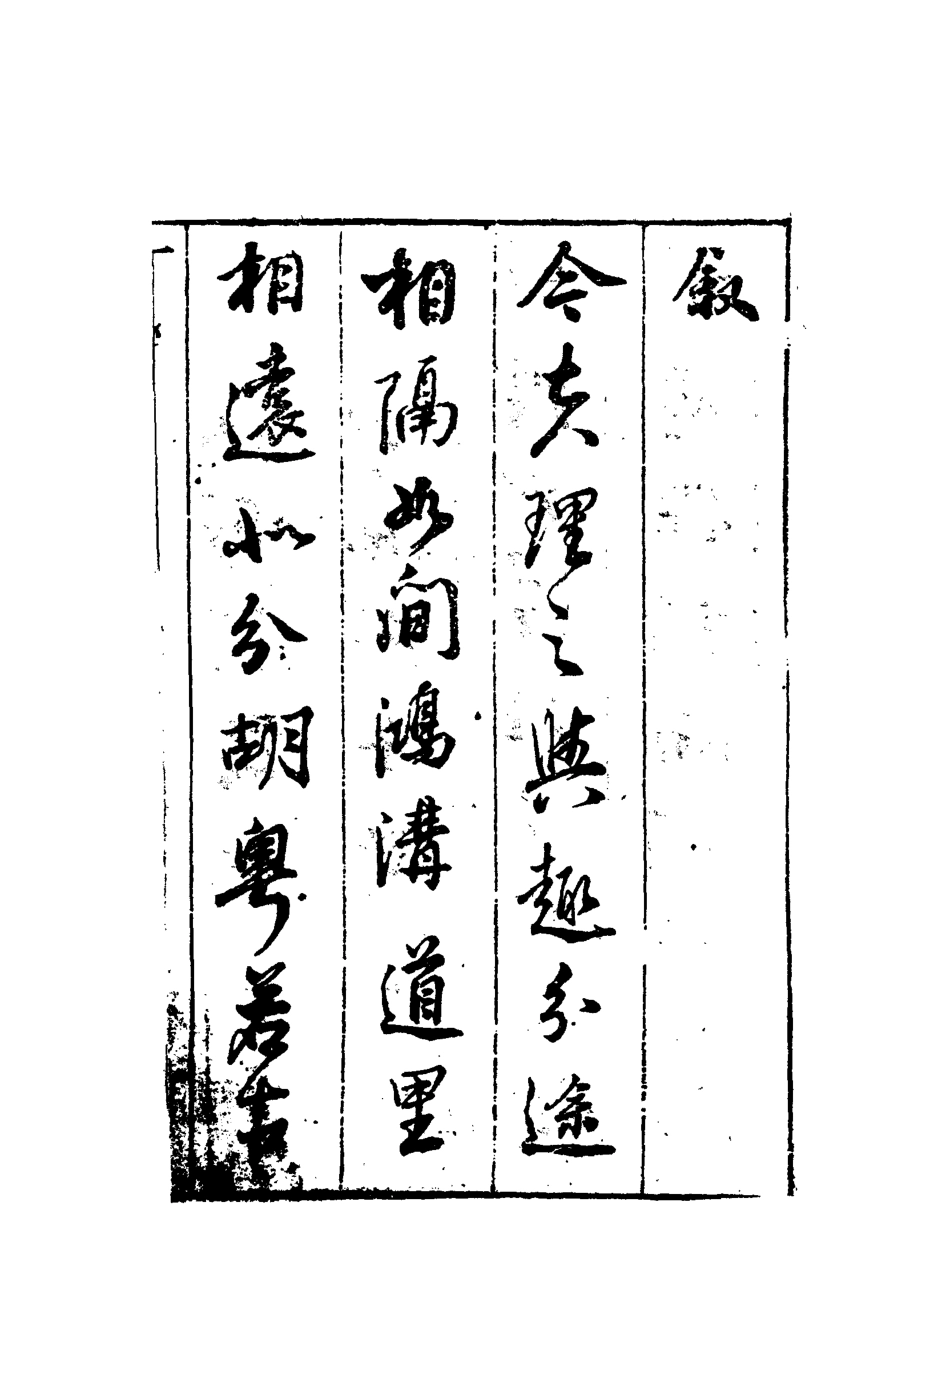 叙
今夫理之與趣分途
相隔如澗鴻溝道里
相遠似分胡粤若